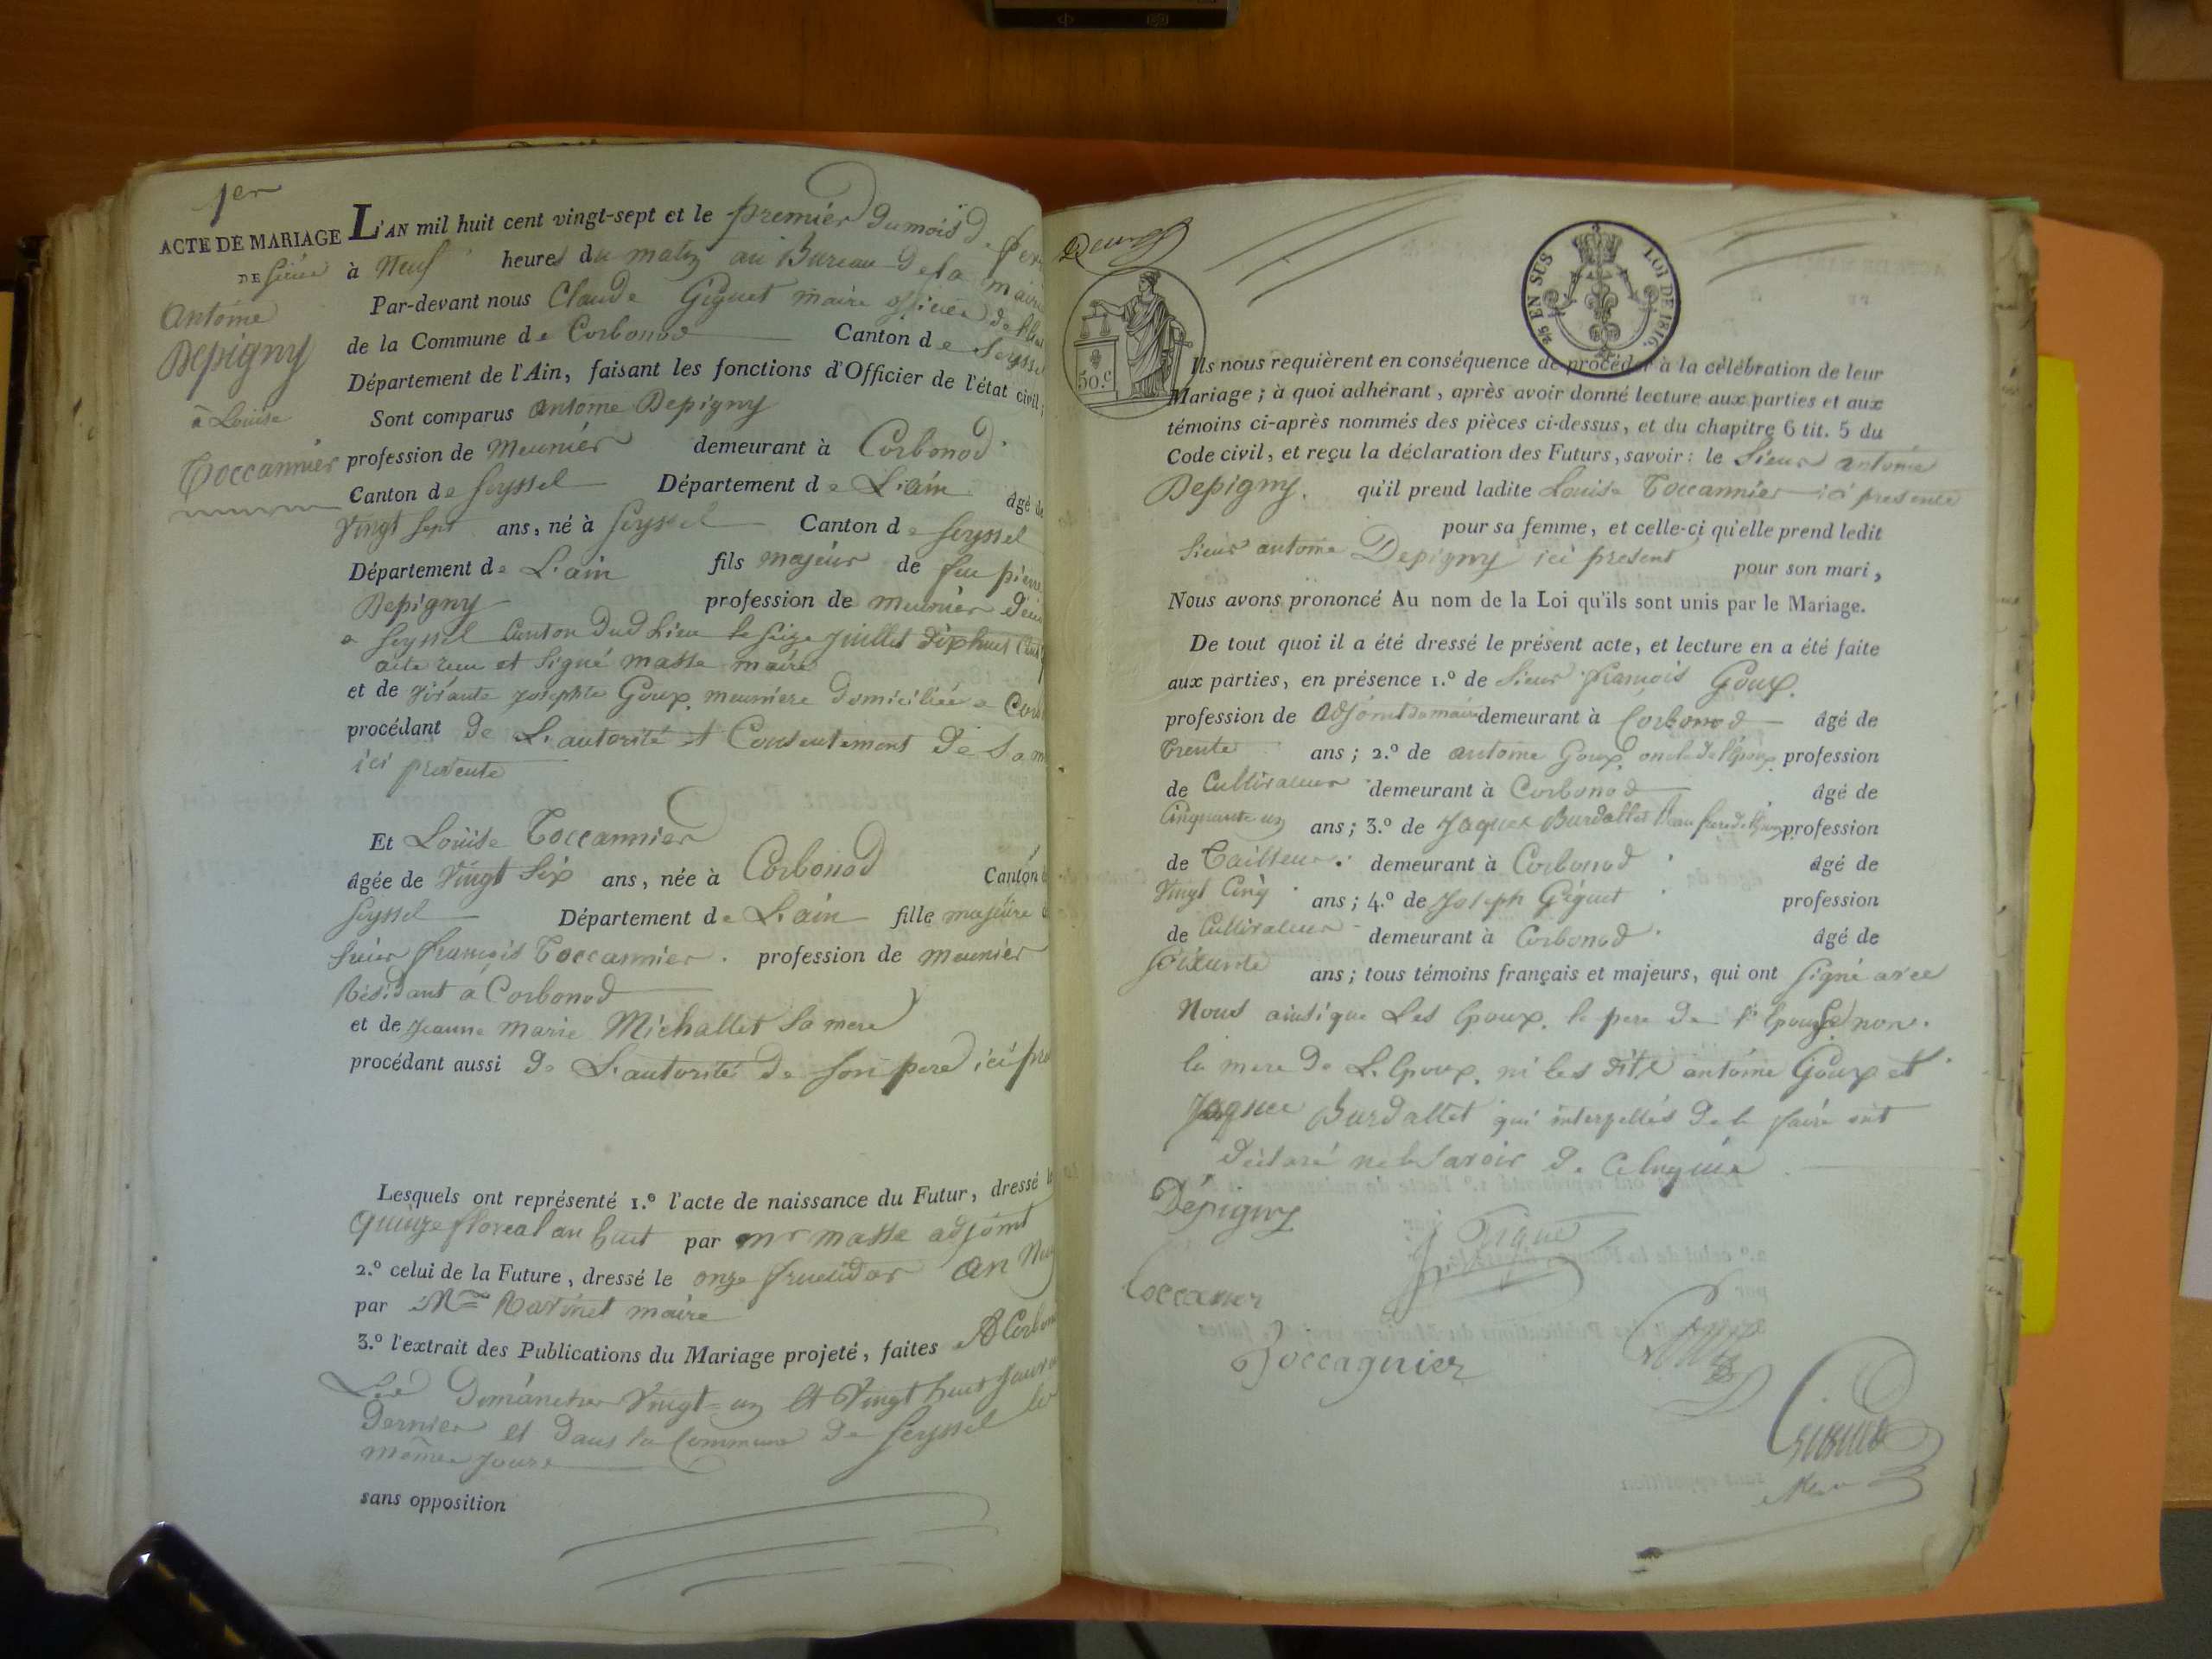 1er
ACTE DE MARIAGE
DE Sieur
Antoine
Depigny
à Louise
Toccannier
L'AN mil huit cent vingt-sept et le premier du mois de
à Neuf heures du matin au Bureau de la mairie
Par-devant nous Claude Giguet maire officier de
de la Commune de Corbonod Canton de Seyssel
Département de l'Ain, faisant les fonctions d'Officier de l'état civil;
Sont comparus antoine Depigny
profession de Meunier demeurant à Corbonod
Canton de Seyssel Département de L'ain âgé de
Vingt Sept ans, né à Seyssel Canton de Seyssel
Département de L'ain fils majeur de feu pierre
Depigny profession de meunier
a Seyssel Canton dud Lieu le Seize juillet dixhuit Cent
acte recu et Signé masse maire
et de vivante josephte Goux, meuniere domiciliée a
procédant de L'autorité et Consentement de Sa
ici presente
Et Louise Toccannier
âgée de Vingt Six ans, née à Corbonod Canton
Seyssel Département de L'ain fille majeure
Sieur françois Toccannier profession de meunier
Résidant a Corbonod
et de jeanne marie Michallet Sa mere
procédant aussi de L'autorité de Son pere ici
Lesquels ont représenté 1.º l'acte de naissance du Futur, dressé le
quinze floreal an huit par mr masse adjoint
2.º celui de la Future, dressé le onze fructidor an
par Mr Ravinet maire
3.º l'extrait des Publications du Mariage projeté, faites A
Les Dimanches Vingt-un et Vingt huit
dernier et dans la Commune de Seyssel les
mêmes jours
sans opposition
50 c
25 EN SUS
LOI DE 1816.
Ils nous requièrent en conséquence de procéder à la célébration de leur
Mariage; à quoi adhérant, après avoir donné lecture aux parties et aux
témoins ci-après nommés des pièces ci-dessus, et du chapitre 6 tit. 5 du
Code civil, et reçu la déclaration des Futurs, savoir: le Sieur antoine
Depigny. qu'il prend ladite Louise Toccannier ici presente
pour sa femme, et celle-ci qu'elle prend ledit
Sieur antoine Depigny ici present pour son mari,
Nous avons prononcé Au nom de la Loi qu'ils sont unis par le Mariage.
De tout quoi il a été dressé le présent acte, et lecture en a été faite
aux parties, en présence 1.º de Sieur françois Goux.
profession de adjoint du maire demeurant à Corbonod âgé de
trente ans; 2.º de antoine Goux oncle de l'Epoux profession
de Cultivateur demeurant à Corbonod âgé de
Cinquante un ans; 3.º de Jaques Burdallet Beau frere de l'Epoux profession
de Tailleur. demeurant à Corbonod âgé de
Vingt Cinq ans; 4.º de Joseph Giguet profession
de Cultivateur demeurant à Corbonod âgé de
Soixante ans; tous témoins français et majeurs, qui ont Signé avec
Nous ainsi que Les Epoux, le pere de l'Epouse, non
la mere de L'Epoux, ni les dits antoine Goux et
Jaques Burdallet qui interpellés de le faire ont
déclaré ne le Savoir de Ce enquis
Dépigny
J Giguet
Toccanier
Toccagnier
Giguet